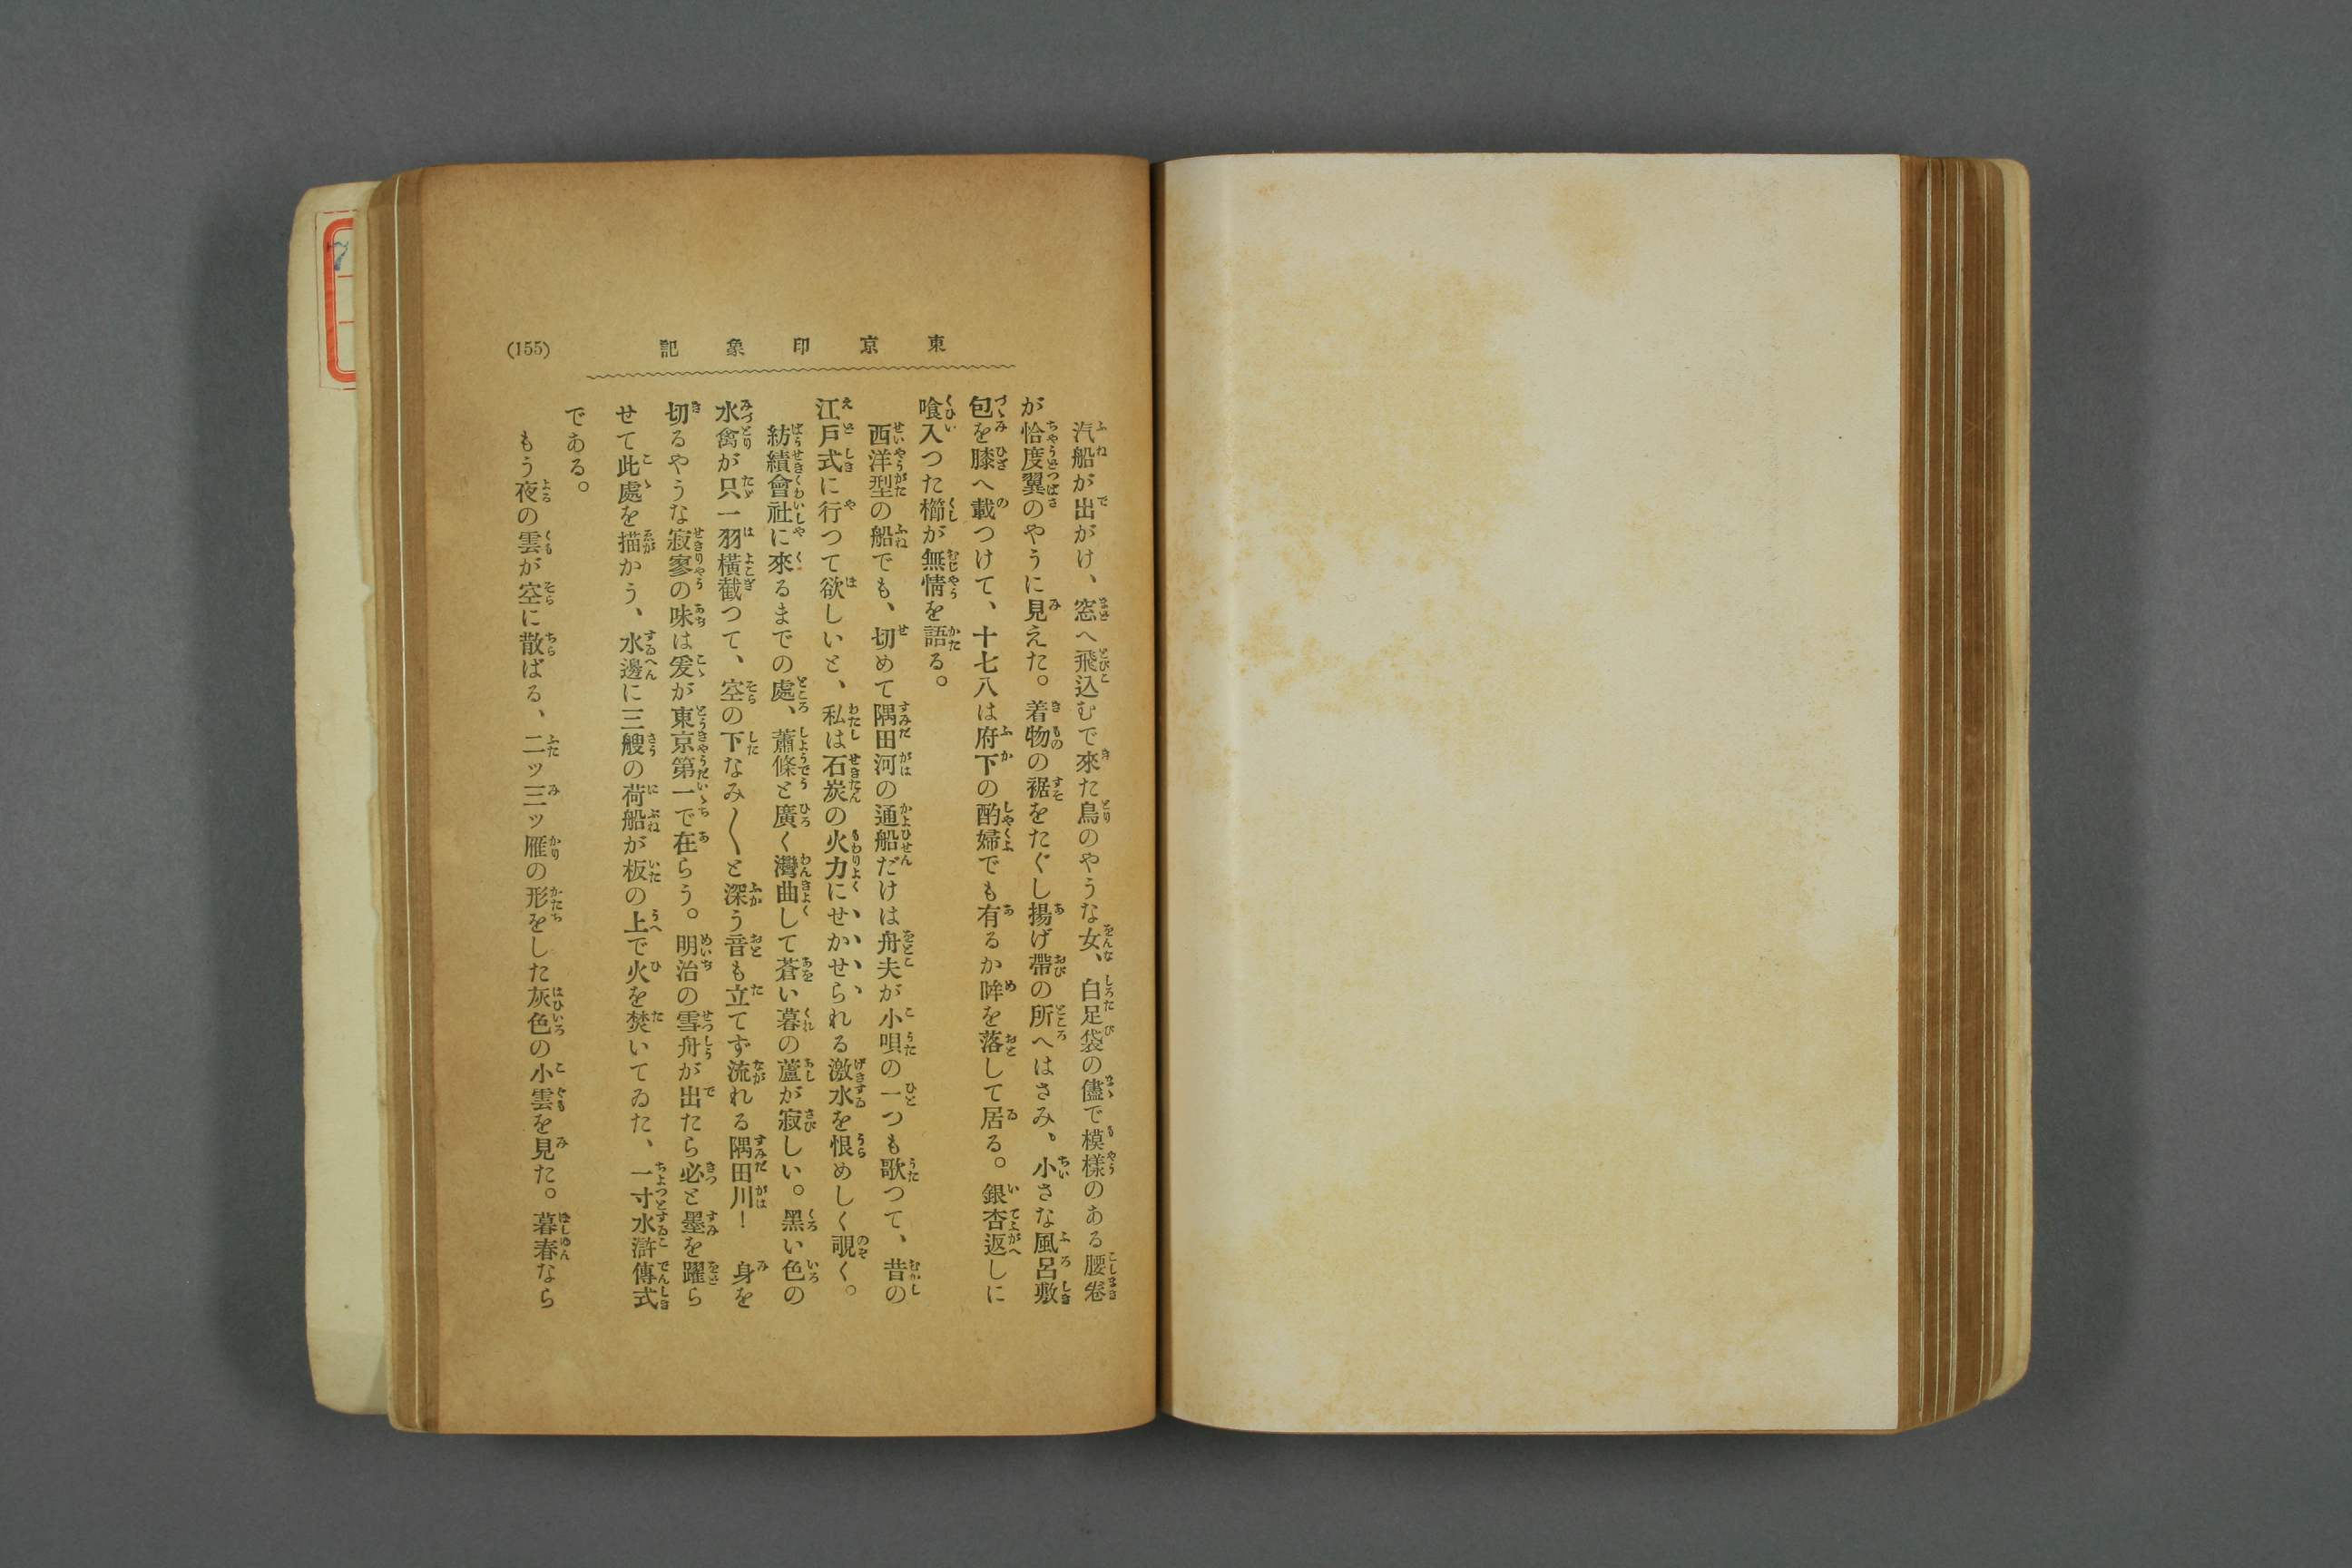 東京印象記
(155)
汽船が出がけ、窓へ飛込むで來た鳥のやうな女、白足袋の儘で模樣のある腰卷
が恰度翼のやうに見えた。着物の裾をたぐし揚げ帶の所へはさみ、小さな風呂敷
包を膝へ載つけて、十七八は府下の酌婦でも有るか眸を落して居る。銀杏返しに
喰入つた櫛が無情を語る。
西洋型の船でも、切めて隅田河の通船だけは舟夫が小唄の一つも歌つて、昔の
江戸式に行つて欲しいと、私は石炭の火力にせかせられる激水を恨めしく覗く。
紡績會社に來るまでの處、蕭條と廣く灣曲して蒼い暮の蘆が寂しい。黑い色の
水禽が只一羽橫截つて、空の下なみ〱と深う音も立てず流れる隅田川！　身を
切るやうな寂寥の味は爰が東京第一で在らう。明治の雪舟が出たら必と墨を躍ら
せて此處を描かう、水邊に三艘の荷船が板の上で火を焚いてゐた、一寸水滸傳式
である。
もう夜の雲が空に散ばる、二ッ三ッ雁の形をした灰色の小雲を見た。暮春なら